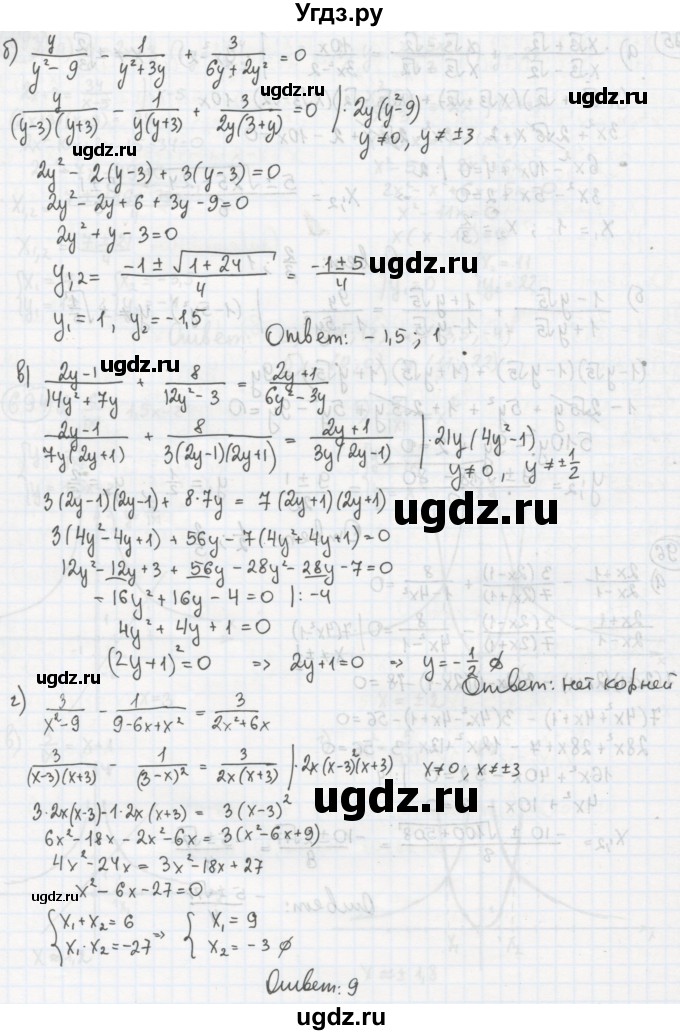 Угдз.ру
б) y/(y²-9) - 1/(y²+3y) + 3/(6y+2y²) = 0
y/((y-3)(y+3)) - 1/(y(y+3)) + 3/(2y(3+y)) = 0 | ·2y(y²-9)
y≠0, y≠±3
ugdz.ru
ugdz.ru
2y² - 2(y-3) + 3(y-3) = 0
2y² - 2y + 6 + 3y - 9 = 0
ugdz.ru
2y² + y - 3 = 0
y₁,₂ = (-1 ± √(1+24))/4 = (-1±5)/4
ugdz.ru
y₁ = 1, y₂ = -1,5
Ответ: -1,5; 1
ugdz.ru
в) (2y-1)/(14y²+7y) + 8/(12y²-3) = (2y+1)/(6y²-3y)
ugdz.ru
(2y-1)/(7y(2y+1)) + 8/(3(2y-1)(2y+1)) = (2y+1)/(3y(2y-1)) | ·21y(4y²-1)
y≠0, y≠±1/2
3(2y-1)(2y-1) + 8·7y = 7(2y+1)(2y+1)
ugdz.ru
3(4y²-4y+1) + 56y - 7(4y²+4y+1) = 0
12y² - 12y + 3 + 56y - 28y² - 28y - 7 = 0
ugdz.ru
-16y² + 16y - 4 = 0 |:-4
4y² + 4y + 1 = 0
(2y+1)² = 0 ⇒ 2y+1=0 ⇒ y = -1/2 ∅
ugdz.ru
Ответ: нет корней
г) 3/(x²-9) - 1/(9-6x+x²) = 3/(2x²+6x)
ugdz.ru
3/((x-3)(x+3)) - 1/((3-x)²) = 3/(2x(x+3)) | ·2x(x-3)²(x+3) x≠0, x≠±3
3·2x(x-3) - 1·2x(x+3) = 3(x-3)²
ugdz.ru
6x² - 18x - 2x² - 6x = 3(x²-6x+9)
4x² - 24x = 3x² - 18x + 27
ugdz.ru
x² - 6x - 27 = 0
{x₁+x₂=6 ⇒ {x₁=9
{x₁·x₂=-27 {x₂=-3 ∅
ugdz.ru
Ответ: 9
ugdz.ru